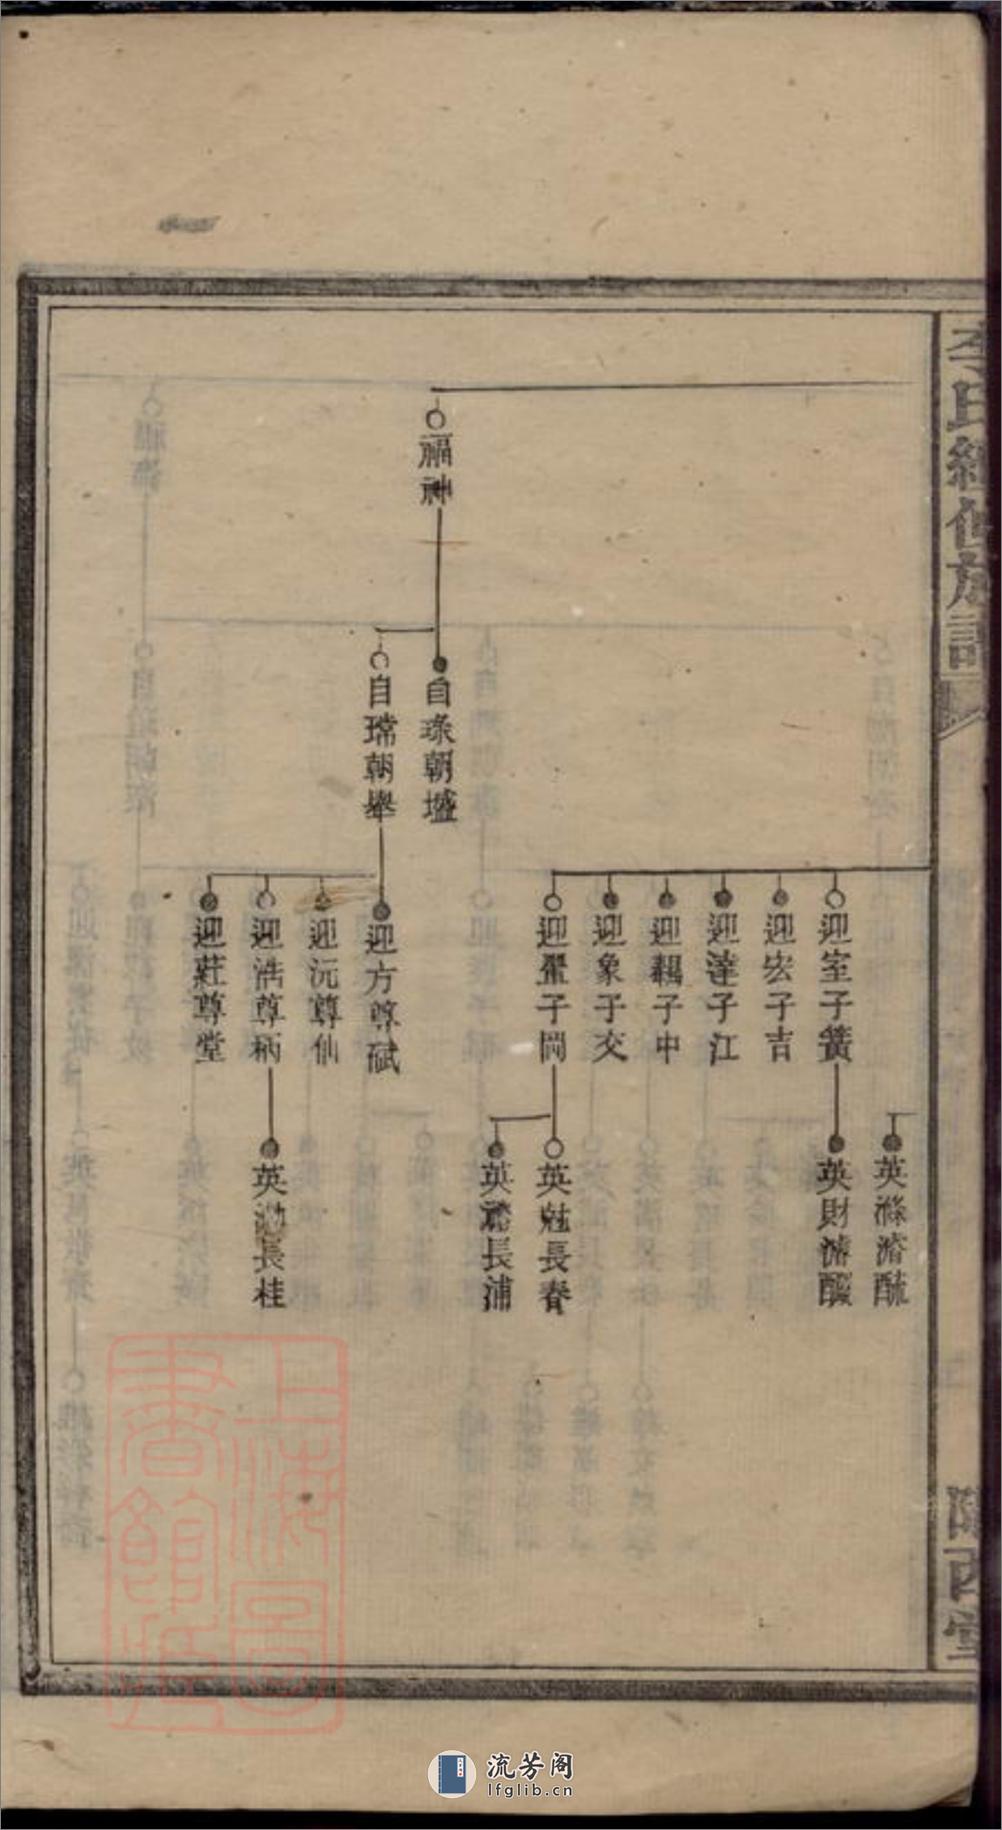 李氏續修族譜
隴西堂
福神
自琭朝壚
自瑺朝舉
迎室子簧
迎宏子吉
迎達子江
迎子中
迎象子交
迎子岡
迎方尊斌
迎沅尊仙
迎浩尊柄
迎莊尊堂
英滌濬
英財濬醲
英魁長春
英長浦
英泐長桂
上海圖書館藏
流芳阁
lfglib.cn